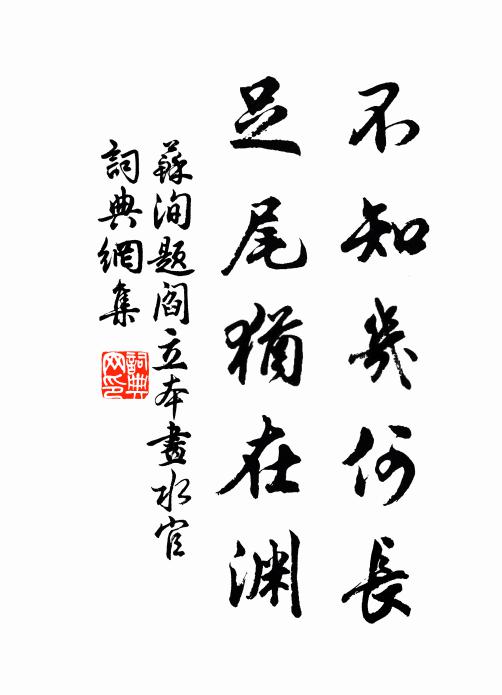 不知幾何長
足尾猶在淵
蘇洵題閻立本畫水官
詞典網集
詞典
网印